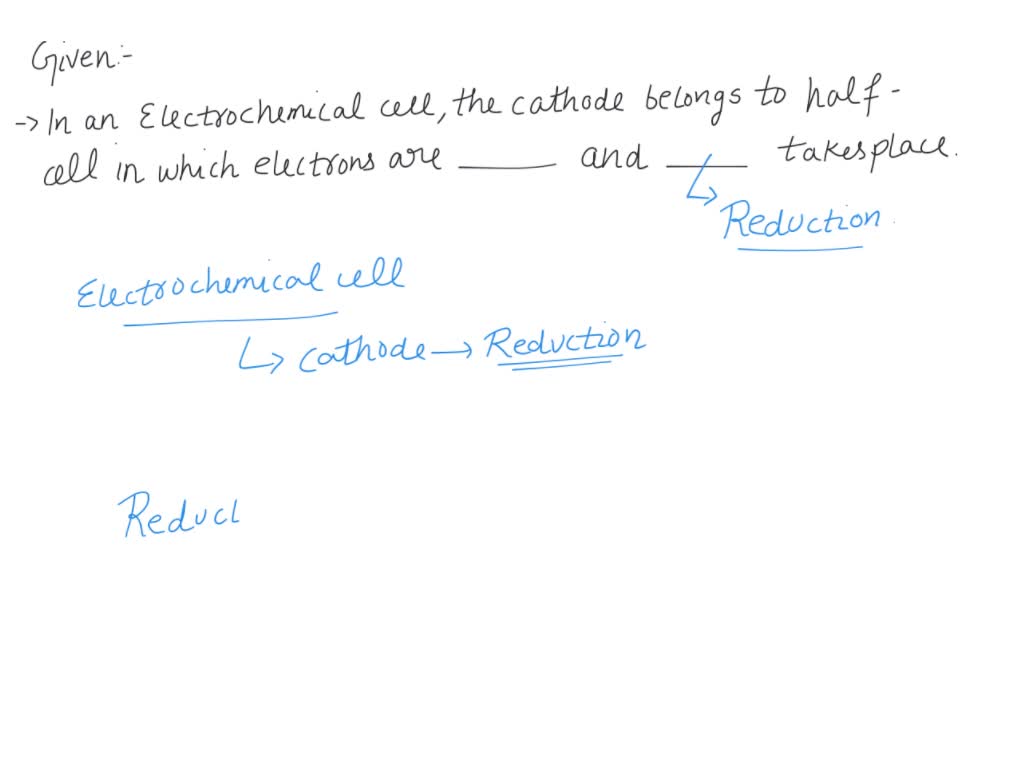 Given:-
-> In an Electrochemical cell, the cathode belongs to half-
cell in which electrons are ______ and ______ takes place.
↳ Reduction
Electrochemical cell
↳ cathode → Reduction
Reduct